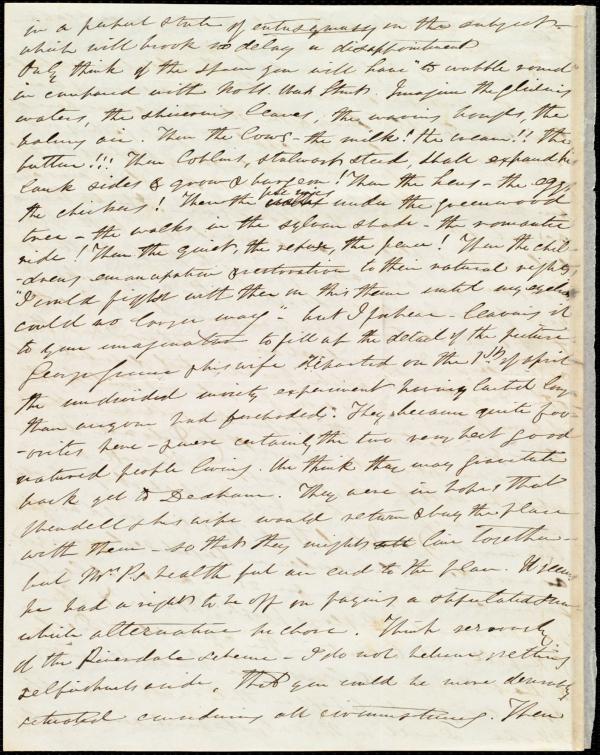 in a perfect state of enthusymussy on the subject -
which will brook no delay or disappointment
Only think of the spun you will have "to wabble round"
in compared with Nobl. Oak Street. Imagine the gliding
waters, the shimmering leaves, the waving boughs, the
balmy air. Then the Cows - the milk! the cream!! the
butter!!! Then Coblins, stalwart steed, shall expand his
lank sides & grow & burgeon! Then the hens - the eggs
the chickens! Then the pic nics under the greenwood
tree - the walks in the sylvan shade - the romantic
ride! Then the quiet, the repose, the peace! Then the chil-
-drens emancipation & restoration to their natural rights,
"I could fight with thee on this theme until my eyelids
could no longer wag" - but I forbear - leaving it
to your imagination to fill up the detail of the picture
George & his wife departed on the 1st of April
the undivided society experiment having lasted longer
than anyone had foreboded. They became quite fav-
-orites here - were certainly the two very best good
natured people living. We think they may gravitate
back yet to Dedham. They were in hopes that
Wendell & his wife would return & buy the place
with them - so that they might live together -
but Mrs P.s health put an end to the plan. It seems
he had a right to be off on paying a stipulated sum
which alternative he chose. Think seriously
of the Riverdale scheme - I do not believe, setting
selfishness aside, that you could be more desirably
situated considering all circumstances. Then